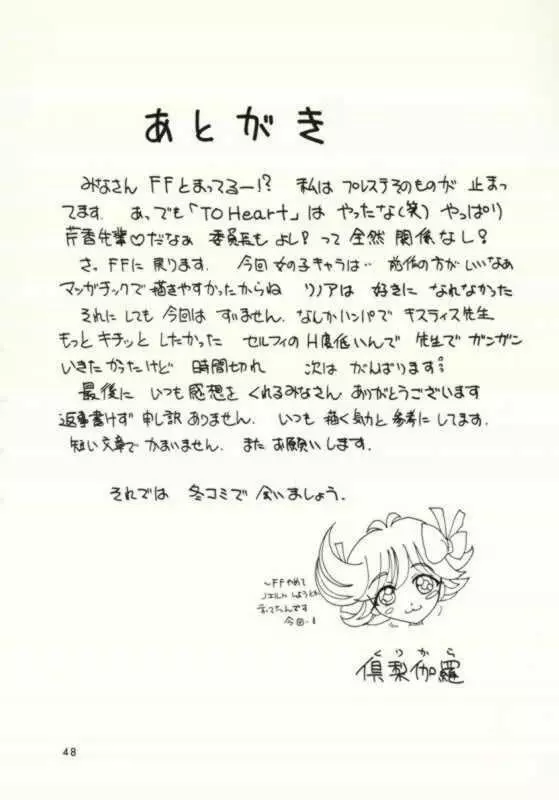 あとがき
みなさん FFとまってるー!? 私は プレステそのものが 止まっ
てます. あっ、でも「TO Heart」は やったな(笑) やっぱり
芹香先輩♡だなぁ 委員長も よし! って 全然 関係なし?
さ。FFに 戻ります. 今回 女の子キャラは‥ 前作の方が いいなあ
マンガチックで描きやすかったからね リノアは 好きに なれなかった
それに しても 今回は すいません. なんしかハンパで キスティス先生
もっと キチッと したかった セルフィのH度低いんで 先生で ガンガン
いきたかったけど 時間切れ 次は がんばります。
最後に いつも 感想を くれるみなさん ありがとうございます
返事書けず 申し訳 ありません. いつも 描く気力と 参考に してます.
短い文章で かまいません. また お願いします.
それでは 冬コミで 会いましょう.
〜FFやめて
ノエルにしようと
言ってたんです
今回‥
くりから
倶梨伽羅
48